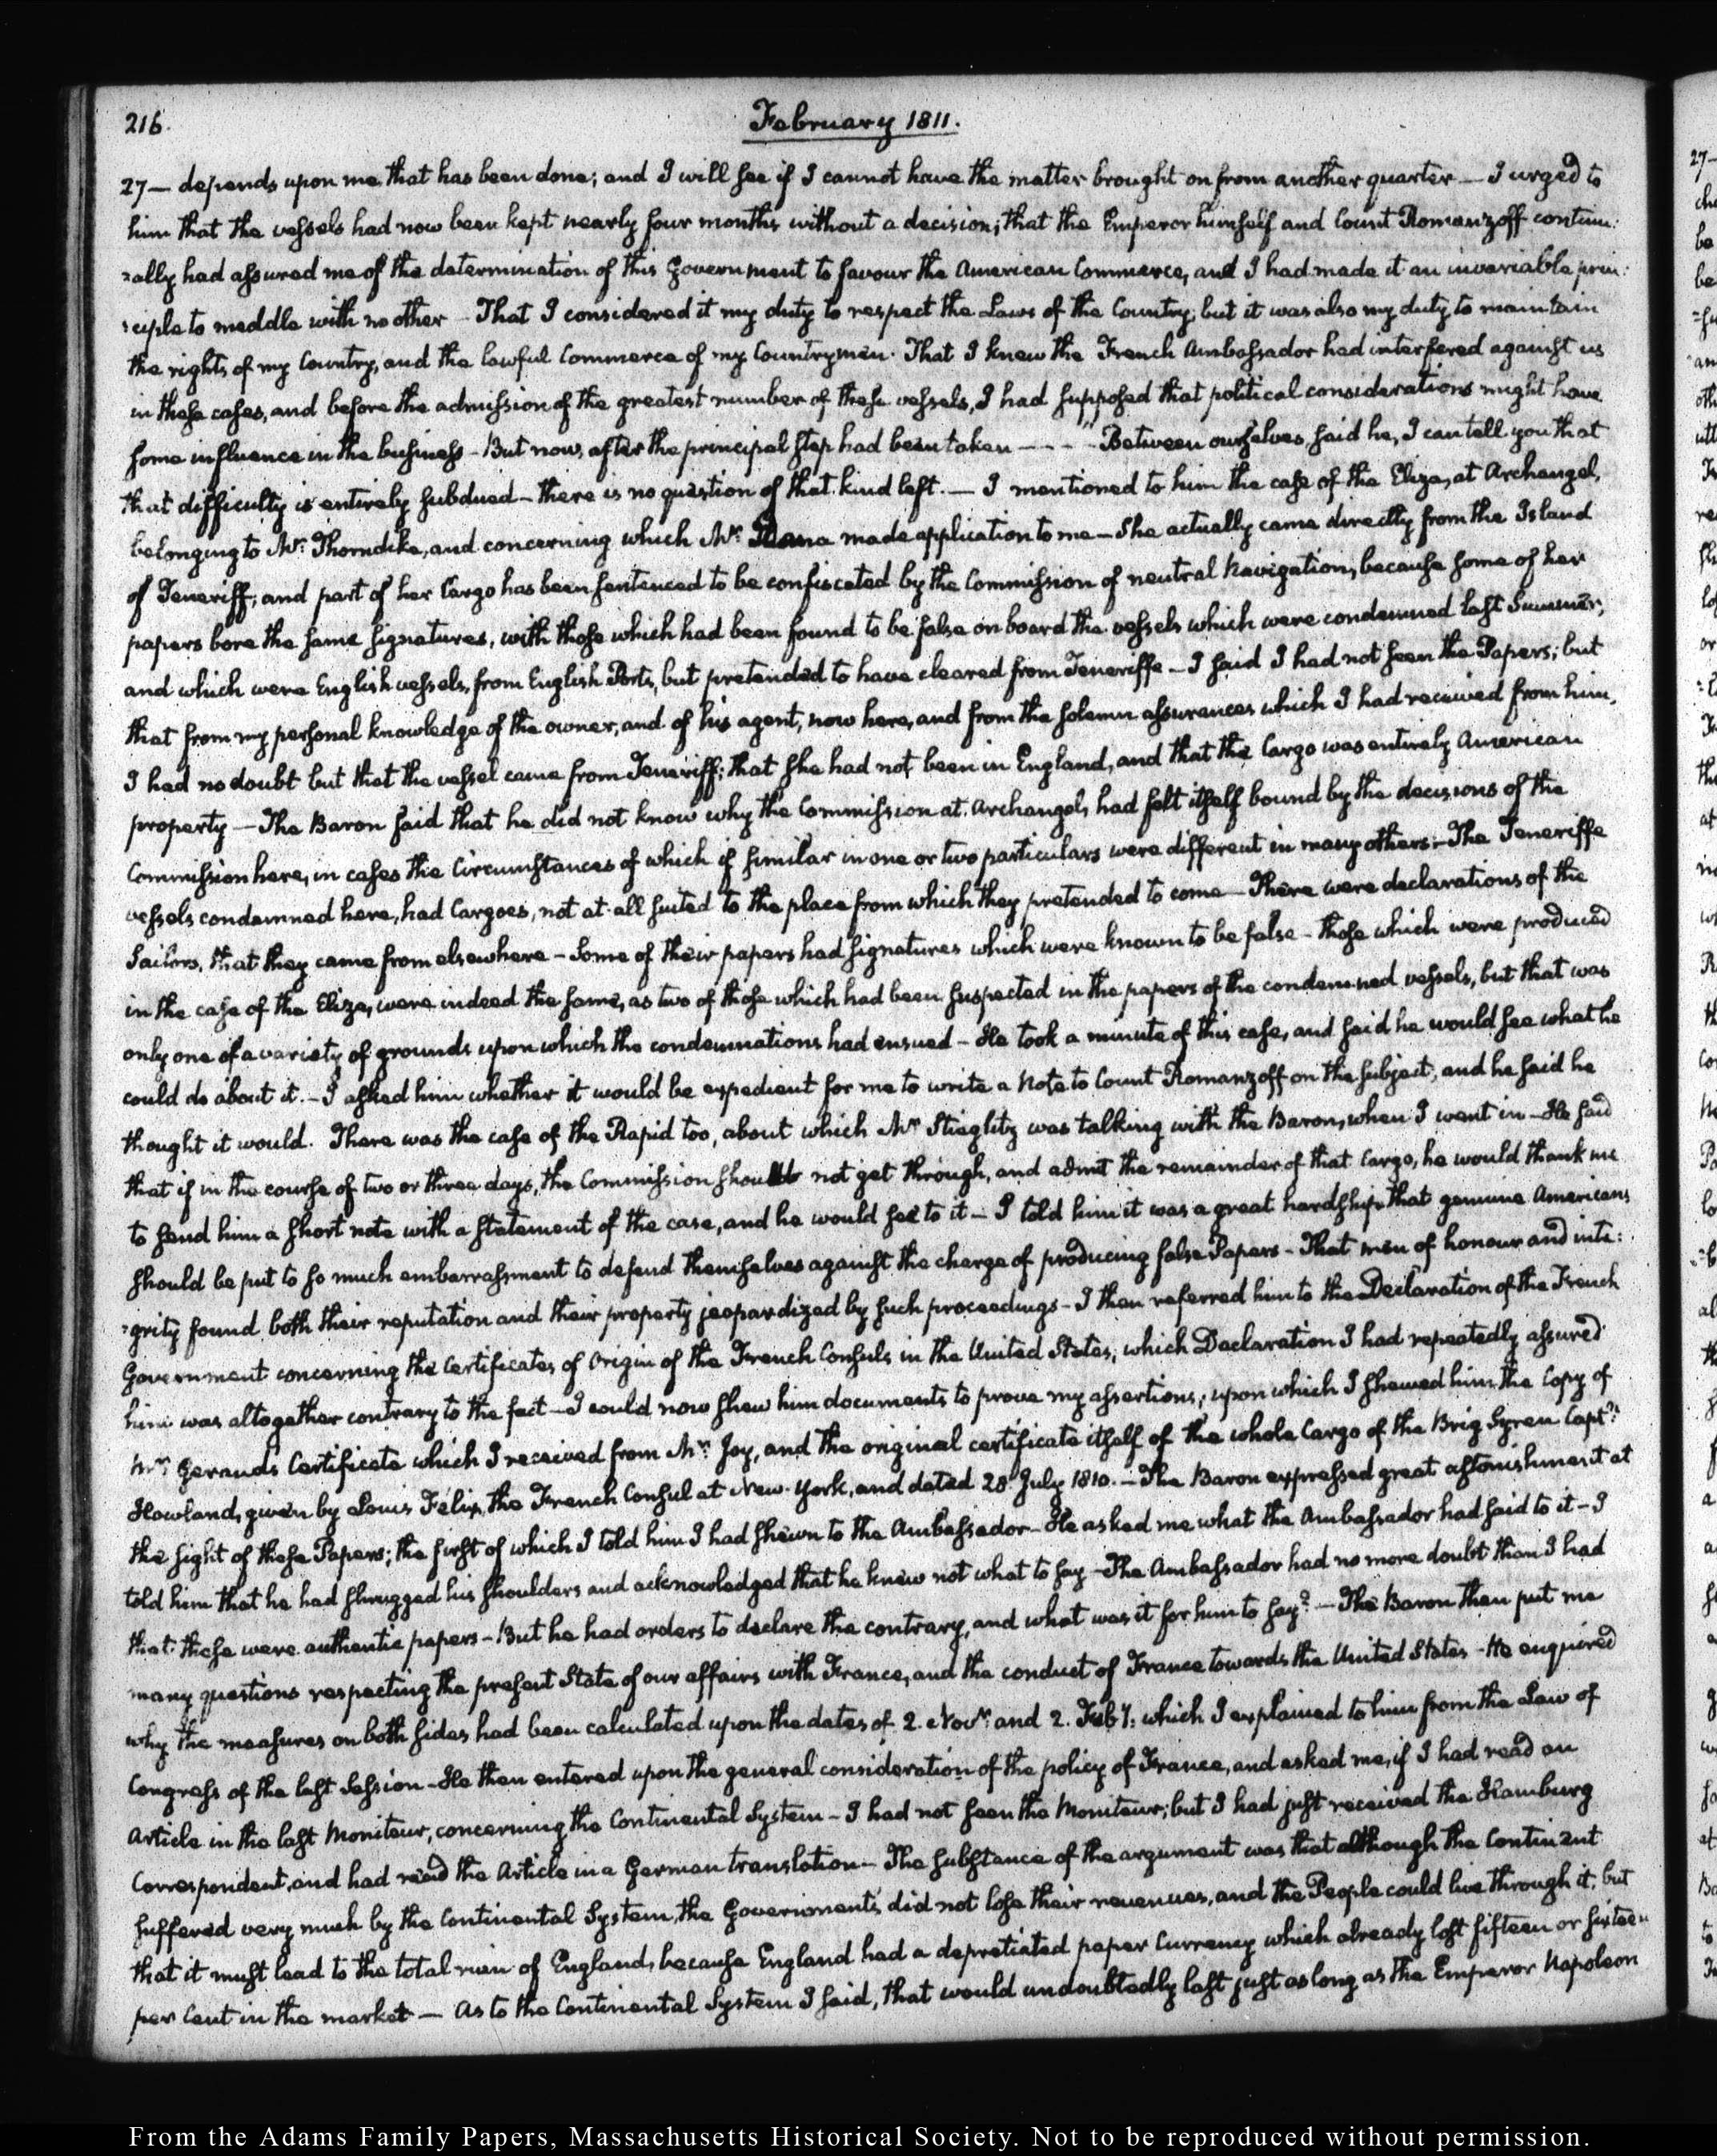 216.
February 1811.
27— depends upon me that has been done; and I will see if I cannot have the matter brought on from another quarter — I urged to
him that the vessels had now been kept nearly four months without a decision; that the Emperor himself and Count Romanzoff continu:
:ally had assured me of the determination of this Government to favour the American Commerce, and I had made it an invariable prin:
:ciple to meddle with no other — That I considered it my duty to respect the Laws of the Country; but it was also my duty to maintain
the rights of my Country, and the lawful Commerce of my Countrymen. That I knew the French Ambassador had interfered against us
in these cases, and before the admission of the greatest number of these vessels, I had supposed that political considerations might have
some influence in the business — But now, after the principal step had been taken - - - "Between ourselves, said he, I can tell you that
that difficulty is entirely subdued — there is no question of that kind left. — I mentioned to him the case of the Eliza, at Archangel,
belonging to Mr: Thorndike, and concerning which Mr: made application to me — She actually came directly from the Island
of Teneriff; and part of her Cargo has been sentenced to be confiscated by the Commission of neutral Navigation, because some of her
papers bore the same signatures, with those which had been found to be false on board the vessels which were condemned last Summer,
and which were English vessels, from English Ports, but pretended to have cleared from Teneriffe — I said I had not seen the Papers; but
that from my personal knowledge of the owner, and of his agent, now here, and from the solemn assurances which I had received from him,
I had no doubt but that the vessel came from Teneriff; that she had not been in England, and that the Cargo was entirely American
property — The Baron said that he did not know why the Commission at Archangel, had felt itself bound by the decisions of the
Commission here, in cases the Circumstances of which if similar in one or two particulars were different in many others — The Teneriffe
vessels condemned here, had Cargoes, not at all suited to the place from which they pretended to come — There were declarations of the
Sailors, that they came from elsewhere — Some of their papers had signatures which were known to be false — those which were produced
in the case of the Eliza, were indeed the same, as two of those which had been suspected in the papers of the condemned vessels, but that was
only one of a variety of grounds upon which the condemnations had ensued — He took a minute of this case, and said he would see what he
could do about it. — I asked him whether it would be expedient for me to write a Note to Count Romanzoff on the subject, and he said he
thought it would. There was the case of the Rapid too, about which Mr Stieglitz was talking with the Baron, when I went in — He said
that if in the course of two or three days, the Commission should not get through, and admit the remainder of that Cargo, he would thank me
to send him a short note with a statement of the case, and he would see to it — I told him it was a great hardship that genuine Americans
should be put to so much embarrassment to defend themselves against the charge of producing false Papers — That men of honour and inte:
:grity found both their reputation and their property jeopardized by such proceedings — I then referred him to the Declaration of the French
Government concerning the Certificates of Origin of the French Consuls in the United States, which Declaration I had repeatedly assured
him was altogether contrary to the fact — I could now shew him documents to prove my assertions; upon which I shewed him the Copy of
Mr: Gerauds Certificate which I received from Mr: Joy, and the original certificate itself of the whole Cargo of the Brig Syren Captn:
Howland, given by Louis Felix, the French Consul at New-York, and dated 28 July 1810. — The Baron expressed great astonishment at
the sight of these Papers; the first of which I told him I had shewn to the Ambassador — He asked me what the Ambassador had said to it — I
told him that he had shrugged his shoulders and acknowledged that he knew not what to say — The Ambassador had no more doubt than I had
that these were authentic papers — But he had orders to declare the contrary, and what was it for him to say? — The Baron then put me
many questions respecting the present State of our affairs with France, and the conduct of France towards the United States — He enquired
why the measures on both sides had been calculated upon the dates of 2. Novr: and 2. Feby: which I explained to him from the Law of
Congress of the last Session — He then entered upon the general consideration of the policy of France, and asked me, if I had read an
Article in the last Moniteur, concerning the Continental System — I had not seen the Moniteur; but I had just received the Hamburg
Correspondent, and had read the Article in a German translation — The substance of the argument was that although the Continent
suffered very much by the Continental System, the Governments did not lose their revenues, and the People could live through it; but
that it must lead to the total ruin of England, because England had a depretiated paper Currency which already lost fifteen or sixteen
per Cent in the market — As to the Continental System I said, that would undoubtedly last just as long as the Emperor Napoleon
From the Adams Family Papers, Massachusetts Historical Society. Not to be reproduced without permission.